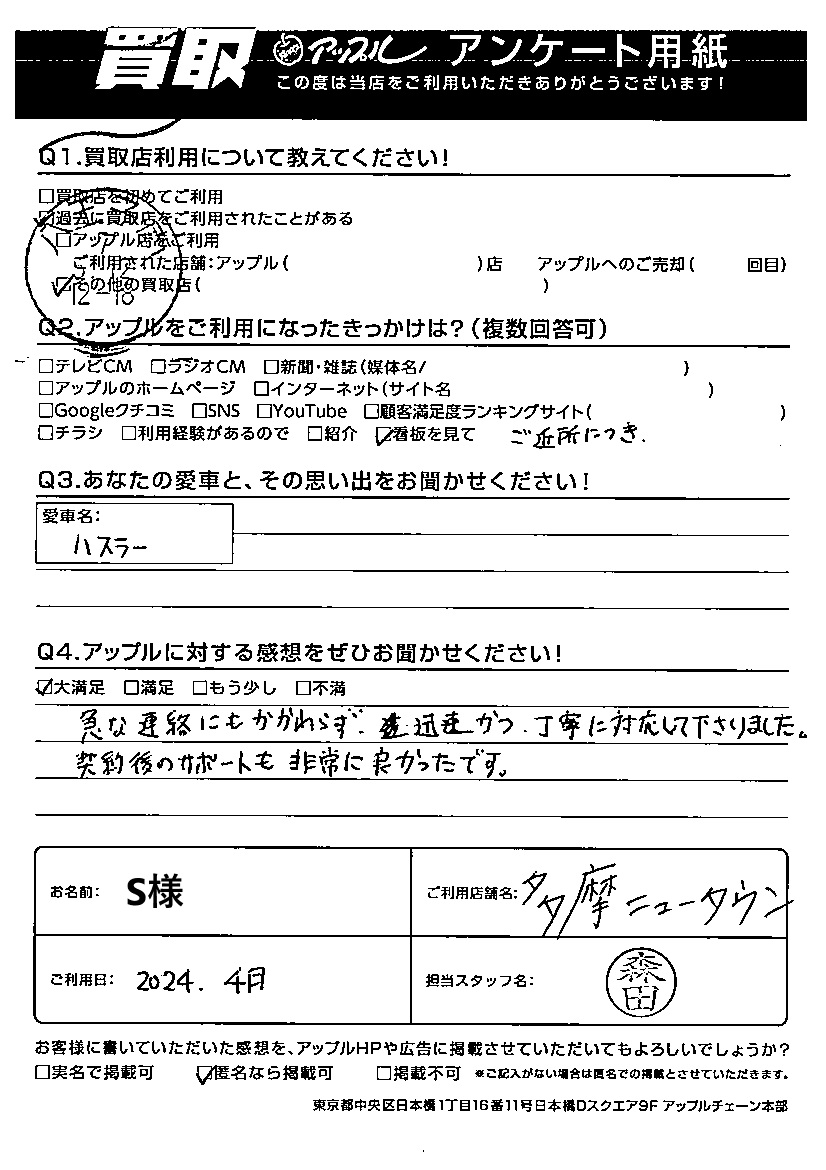 買取 アップル アンケート用紙
この度は当店をご利用いただきありがとうございます!
Q1.買取店利用について教えてください!
□買取店を初めてご利用
☑過去に買取店をご利用されたことがある
□アップル店をご利用
ご利用された店舗:アップル( )店 アップルへのご売却( 回目)
☑その他の買取店( )
12-18
Q2.アップルをご利用になったきっかけは?(複数回答可)
□テレビCM □ラジオCM □新聞・雑誌(媒体名/ )
□アップルのホームページ □インターネット(サイト名 )
□Googleクチコミ □SNS □YouTube □顧客満足度ランキングサイト( )
□チラシ □利用経験があるので □紹介 ☑看板を見て ご近所につき.
Q3.あなたの愛車と、その思い出をお聞かせください!
愛車名:
ハスラー
Q4.アップルに対する感想をぜひお聞かせください!
☑大満足 □満足 □もう少し □不満
急な連絡にもかかわらず、迅速かつ、丁寧に対応して下さりました。
契約後のサポートも非常に良かったです。
お名前: S様 ご利用店舗名: 多摩ニュータウン
ご利用日: 2024. 4月 担当スタッフ名: 森田
お客様に書いていただいた感想を、アップルHPや広告に掲載させていただいてもよろしいでしょうか?
□実名で掲載可 ☑匿名なら掲載可 □掲載不可 ※ご記入がない場合は匿名での掲載とさせていただきます。
東京都中央区日本橋1丁目16番11号日本橋Dスクエア9F アップルチェーン本部